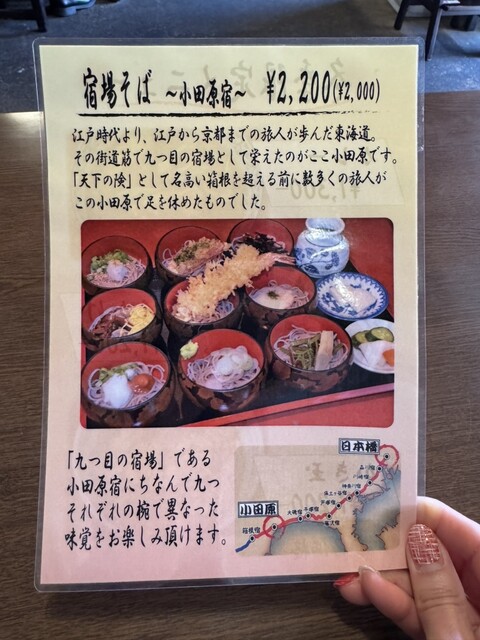 宿場そば ~小田原宿~ ¥2,200(¥2,000)
江戸時代より、江戸から京都までの旅人が歩んだ東海道。
その街道筋で九つ目の宿場として栄えたのがここ小田原です。
「天下の険」として名高い箱根を超える前に数多くの旅人が
この小田原で足を休めたものでした。
「九つ目の宿場」である
小田原宿にちなんで九つ
それぞれの椀で異なった
味覚をお楽しみ頂けます。
日本橋
品川宿
川崎宿
神奈川宿
保土ヶ谷宿
戸塚宿
藤沢宿
平塚宿
大磯宿
小田原
箱根宿